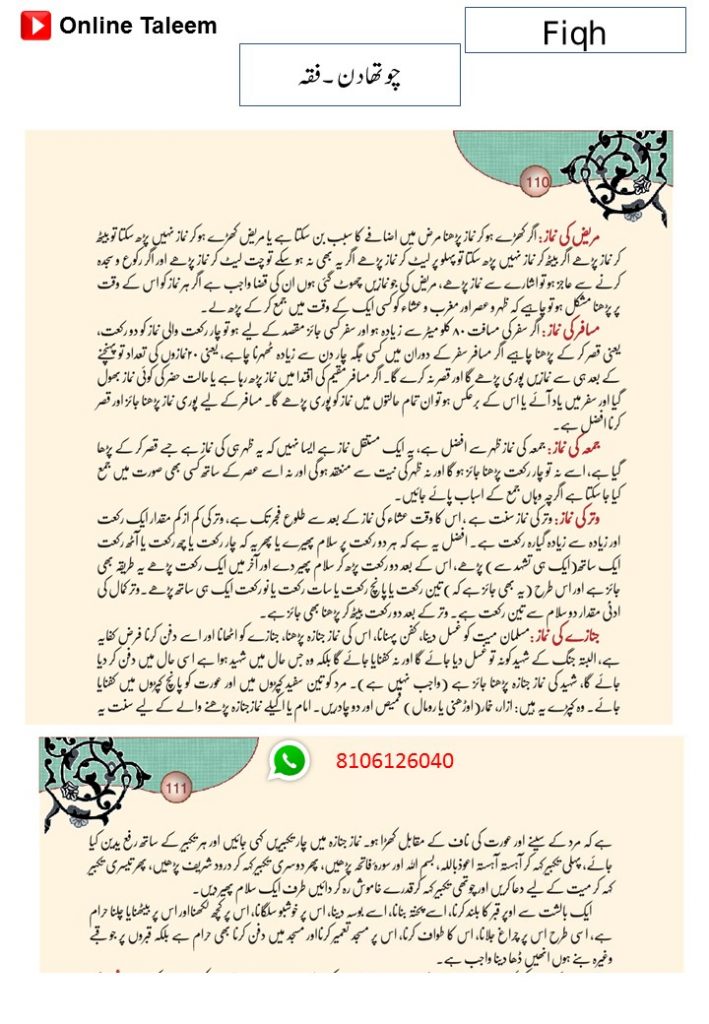 Online Taleem
Fiqh
چوتھا دن ۔ فقہ
110
مریض کی نماز: اگر کھڑے ہو کر نماز پڑھنا مرض میں اضافے کا سبب بن سکتا ہے یا مریض کھڑے ہو کر نماز نہیں پڑھ سکتا تو بیٹھ
کر نماز پڑھے اگر بیٹھ کر نماز نہیں پڑھ سکتا تو پہلو پر لیٹ کر نماز پڑھے اگر یہ بھی نہ ہو سکے تو چت لیٹ کر نماز پڑھے اور اگر رکوع و سجدہ
کرنے سے عاجز ہو تو اشارے سے نماز پڑھے، مریض کی جو نمازیں چھوٹ گئی ہوں ان کی قضا واجب ہے اگر ہر نماز کو اس کے وقت
پر پڑھنا مشکل ہو تو چاہیے کہ ظہر و عصر اور مغرب و عشاء کو کسی ایک کے وقت میں جمع کر کے پڑھ لے۔
مسافر کی نماز: اگر سفر کی مسافت ۸۰ کلو میٹر سے زیادہ ہو اور سفر کسی جائز مقصد کے لیے ہو تو چار رکعت والی نماز کو دو رکعت،
یعنی قصر کر کے پڑھنا چاہیے اگر مسافر سفر کے دوران میں کسی جگہ چار دن سے زیادہ ٹھہرنا چاہے، یعنی ۲۰ نمازوں کی تعداد تو پہنچنے
کے بعد ہی سے نمازیں پوری پڑھے گا اور قصر نہ کرے گا۔ اگر مسافر مقیم کی اقتدا میں نماز پڑھ رہا ہے یا حالت حضر کی کوئی نماز بھول
گیا اور سفر میں یاد آئے یا اس کے برعکس ہو تو ان تمام حالتوں میں نماز کو پوری پڑھے گا۔ مسافر کے لیے پوری نماز پڑھنا جائز اور قصر
کرنا افضل ہے۔
جمعہ کی نماز: جمعہ کی نماز ظہر سے افضل ہے، یہ ایک مستقل نماز ہے ایسا نہیں کہ یہ ظہر ہی کی نماز ہے جسے قصر کر کے پڑھا
گیا ہے، اسے نہ تو چار رکعت پڑھنا جائز ہو گا اور نہ ظہر کی نیت سے منعقد ہو گی اور نہ اسے عصر کے ساتھ کسی بھی صورت میں جمع
کیا جا سکتا ہے اگرچہ وہاں جمع کے اسباب پائے جائیں۔
وتر کی نماز: وتر کی نماز سنت ہے، اس کا وقت عشاء کی نماز کے بعد سے طلوع فجر تک ہے، وتر کی کم از کم مقدار ایک رکعت
اور زیادہ سے زیادہ گیارہ رکعت ہے۔ افضل یہ ہے کہ ہر دو رکعت پر سلام پھیرے یا پھر یہ کہ چار رکعت یا چھ رکعت یا آٹھ رکعت
ایک ساتھ (ایک ہی تشہد سے) پڑھے، اس کے بعد دو رکعت پڑھ کر سلام پھیر دے اور آخر میں ایک رکعت پڑھے یہ طریقہ بھی
جائز ہے اور اس طرح (یہ بھی جائز ہے کہ) تین رکعت یا پانچ رکعت یا سات رکعت یا نو رکعت ایک ہی ساتھ پڑھے۔ وتر کمال کی
ادنی مقدار دو سلام سے تین رکعت ہے۔ وتر کے بعد دو رکعت بیٹھ کر پڑھنا بھی جائز ہے۔
جنازے کی نماز: مسلمان میت کو غسل دینا، کفن پہنانا، اس کی نماز جنازہ پڑھنا، جنازے کو اٹھانا اور اسے دفن کرنا فرض کفایہ
ہے، البتہ جنگ کے شہید کو نہ تو غسل دیا جائے گا اور نہ کفنایا جائے گا بلکہ وہ جس حال میں شہید ہوا ہے اسی حال میں دفن کر دیا
جائے گا، شہید کی نماز جنازہ پڑھنا جائز ہے (واجب نہیں ہے)۔ مرد کو تین سفید کپڑوں میں اور عورت کو پانچ کپڑوں میں کفنایا
جائے۔ وہ کپڑے یہ ہیں: ازار، خمار (اوڑھنی یا رومال) قمیص اور دو چادریں۔ امام یا اکیلے نماز جنازہ پڑھنے والے کے لیے سنت یہ
8106126040
111
ہے کہ مرد کے سینے اور عورت کی ناف کے مقابل کھڑا ہو۔ نماز جنازہ میں چار تکبیریں کہی جائیں اور ہر تکبیر کے ساتھ رفع یدین کیا
جائے، پہلی تکبیر کہہ کر آہستہ آہستہ اعوذ باللہ، بسم اللہ اور سورۂ فاتحہ پڑھیں، پھر دوسری تکبیر کہہ کر درود شریف پڑھیں، پھر تیسری تکبیر
کہہ کر میت کے لیے دعا کریں اور چوتھی تکبیر کہہ کر قدرے خاموش رہ کر دائیں طرف ایک سلام پھیر دیں۔
ایک بالشت سے اوپر قبر کا بلند کرنا، اسے پختہ بنانا، اسے بوسہ دینا، اس پر خوشبو سلگانا، اس پر کچھ لکھنا اور اس پر بیٹھنا یا چلنا حرام
ہے، اسی طرح اس پر چراغ جلانا، اس کا طواف کرنا، اس پر مسجد تعمیر کرنا اور مسجد میں دفن کرنا بھی حرام ہے بلکہ قبروں پر جو قبے
وغیرہ بنے ہوں انھیں ڈھا دینا واجب ہے۔